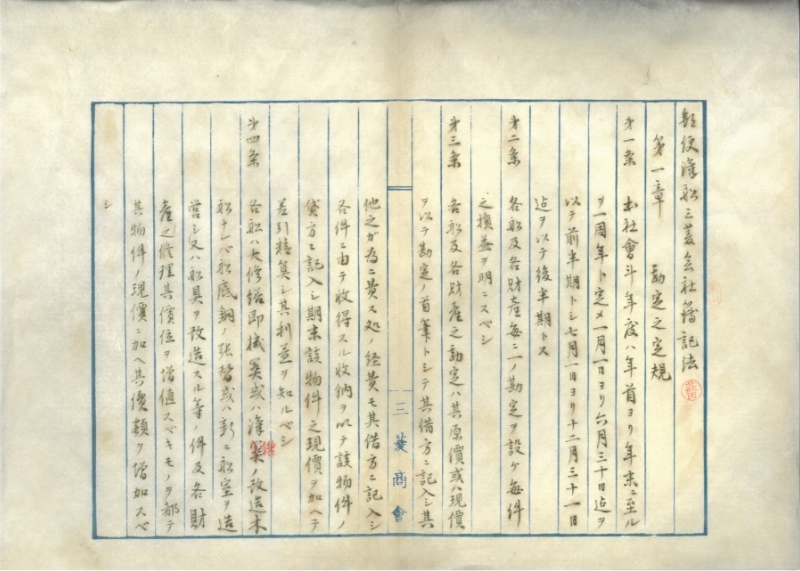 郵便滊船三菱会社簿記法
第一章　勘定之定規
第一条　本社會計年度ハ年首ヨリ年末ニ至ル
ヲ一周年ト定メ一月一日ヨリ六月三十日迄ヲ
以テ前半期トシ七月一日ヨリ十二月三十一日
迄ヲ以テ後半期トス
第二条　各船及各財産毎ニ一ノ勘定ヲ設ケ毎件
之損益ヲ明ニスベシ
第三条　各船及各財産之勘定ハ其原價或ハ現價
ヲ以テ勘定ノ首筆トシテ其借方ニ記入シ其
三菱商會
他之ガ為ニ費ス処ノ経費モ其借方ニ記入シ
各件ニ由テ収得スル收納ヲ以テ該物件ノ
貸方ニ記入シ期末該物件之現價ヲ加ヘテ
差引精算シ其利益ヲ知ルベシ
第四条　各船ハ大修繕即機関或ハ滊鑵ノ改造木
船ナレバ船底銅ノ張替或ハ新ニ船室ヲ造
営シ又ハ船具ヲ改造スル等ノ件及各財
産之修理其價位ヲ増値スベキモノヲ都テ
其物件ノ現價ニ加ヘ其價額ヲ増加スベ
シ